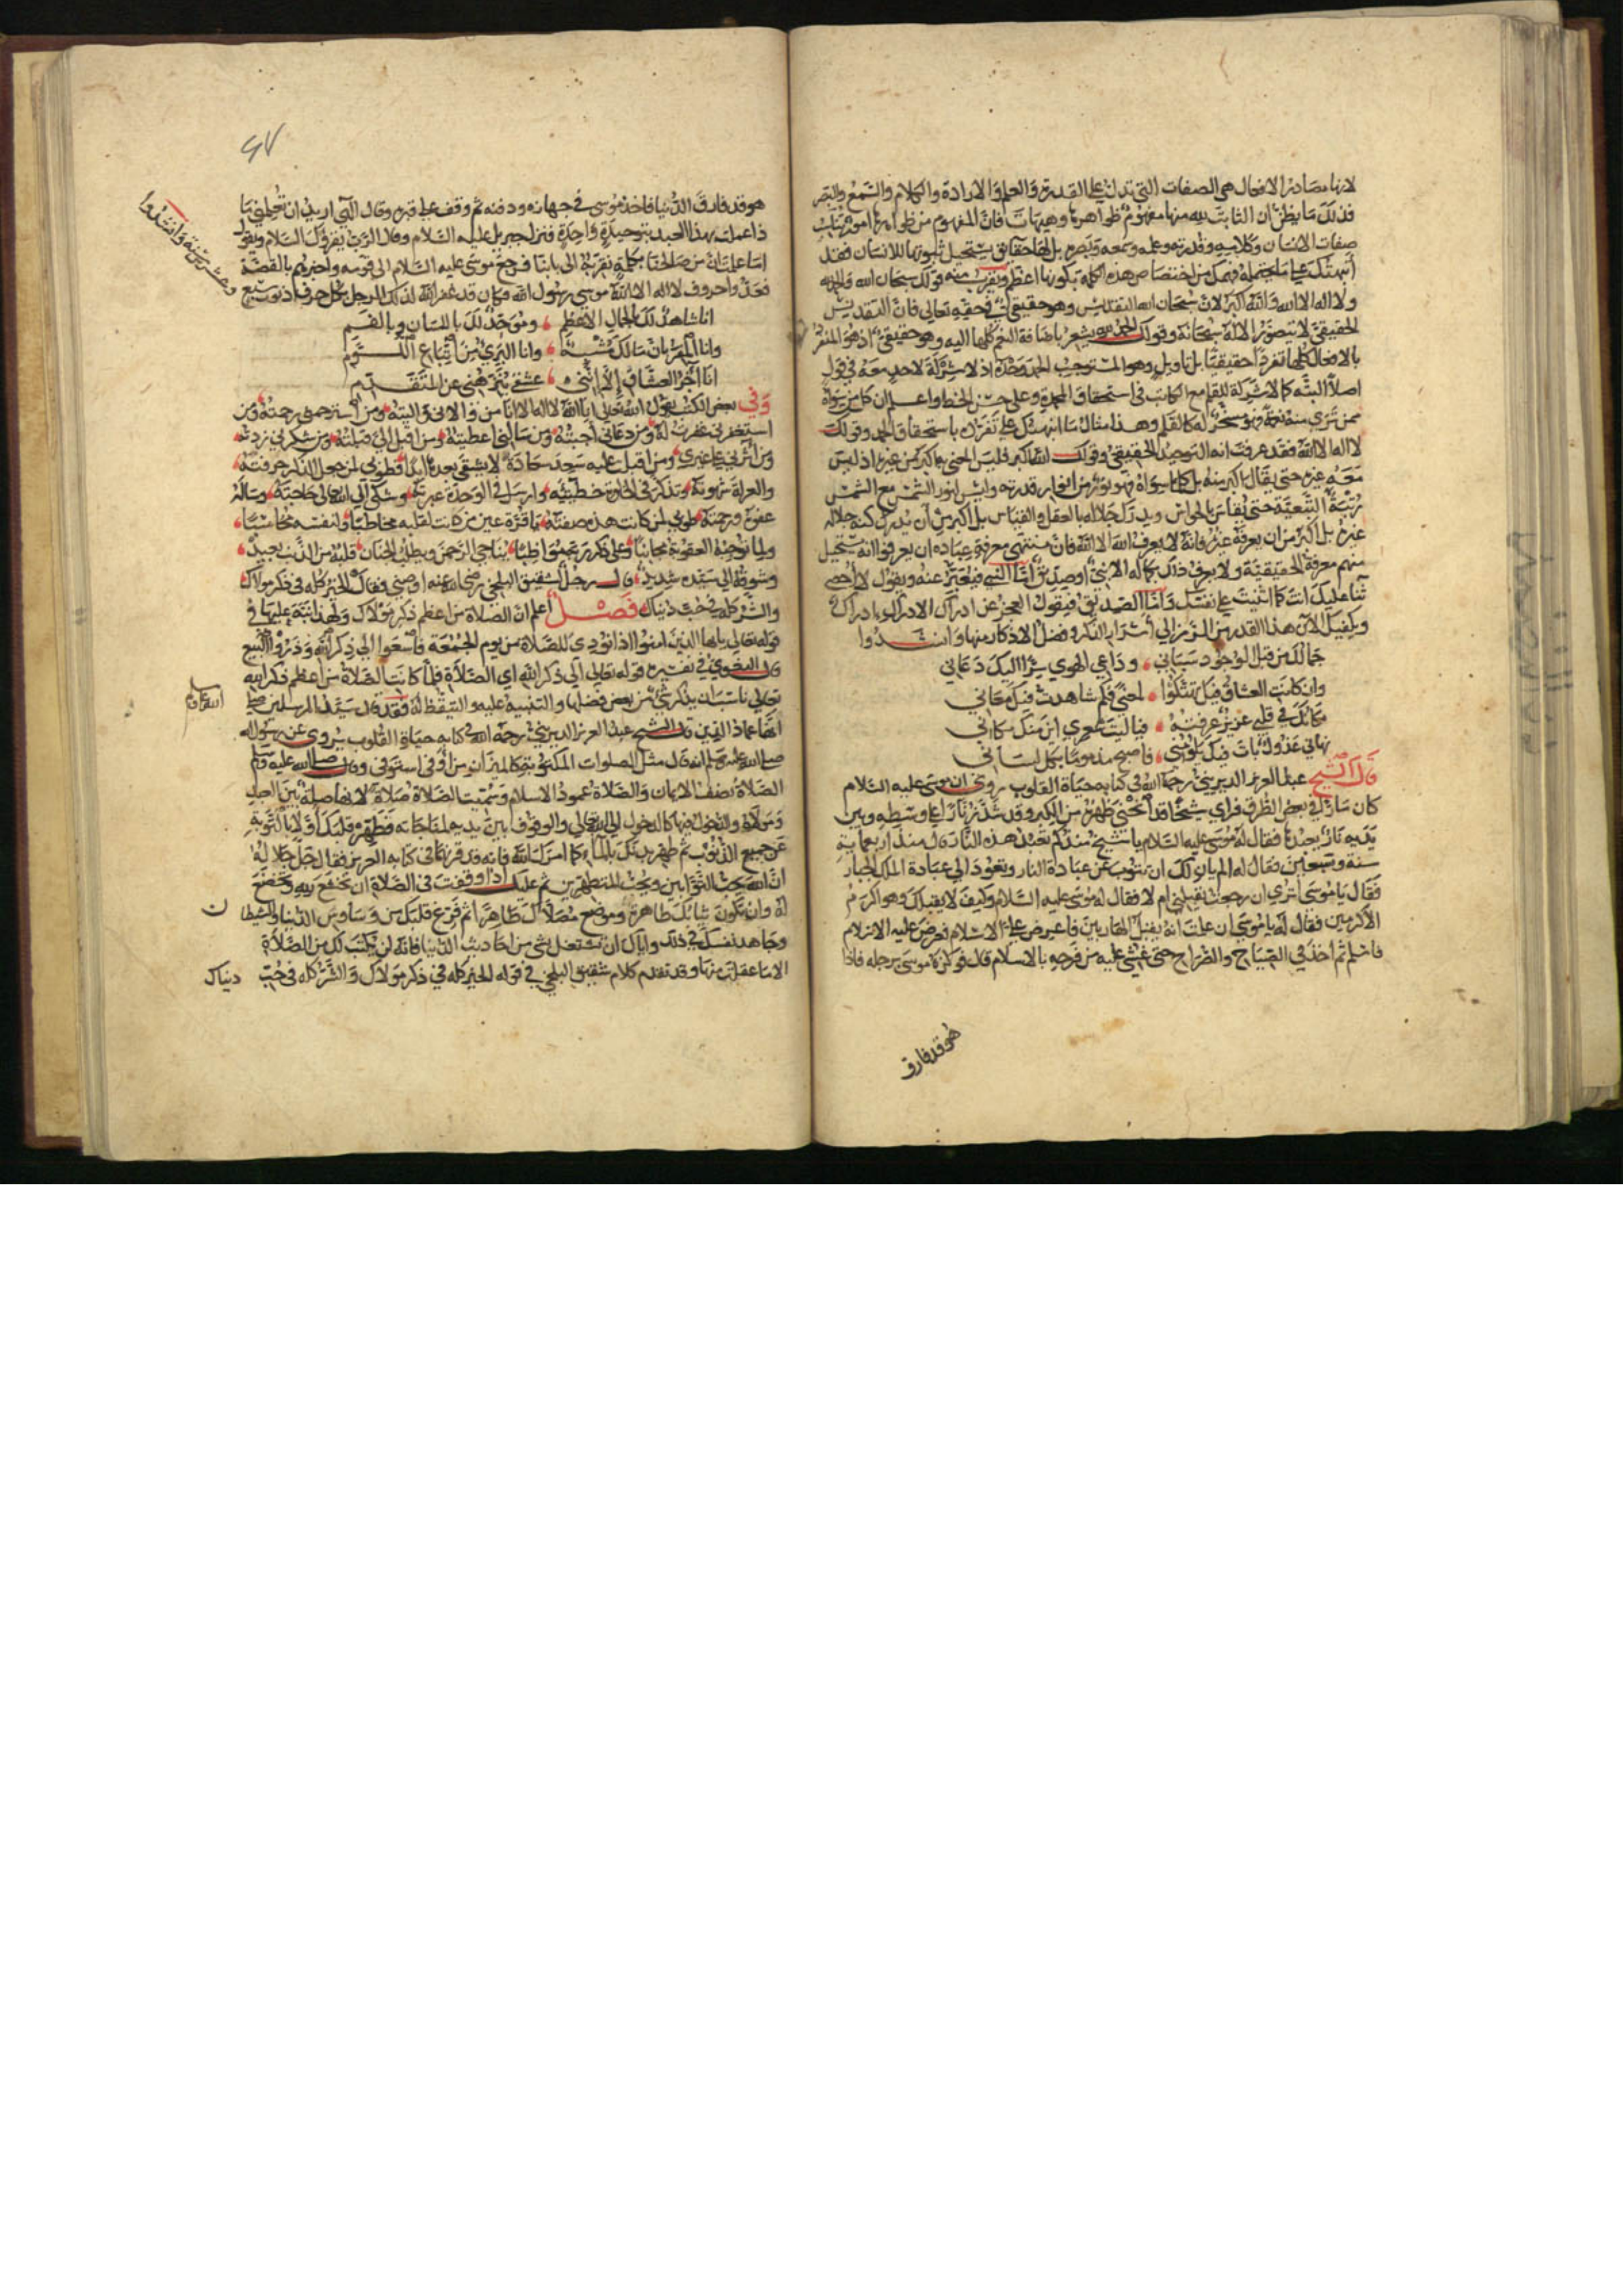 لانها مصادر الافعال هي الصفات التي تدل على القدرة والعلم والارادة والكلام والسمع والبصر
فذلك ما يظن ان الثابت لله منها مفهوم ظواهرها وهيهات فان المفهوم من ظواهرها امور تناسب
صفات الانسان وكلامه وقدرته وعلمه وسمعه وبصره بل لها حقايق يستحيل ثبوتها للانسان فقد
أنبهتك على ما تحتمله فهمك من اختصاص هذه الكلمة بكونها اعظم ويقرب منه قولك سبحان الله والحمد لله
ولا اله الا الله والله اكبر لان سبحان الله للتقديس وهو حقيقي في حقه تعالى فان التقديس
الحقيقي لا يتصور الا له سبحانه وقولك الحمد لله يشعر باضافة النعم كلها اليه وهو حقيقي اذ هو المنفرد
بالافعال كلها تفردا حقيقيا بلا تاويل وهو المستوجب الحمد وحده اذ لا شركة لاحد معه في فعل
اصلا البتة كما لا شركة للقلم مع الكاتب في استحقاق المحمدة وعلى حسن الخط واعلم ان كل من سواه
ممن ترى منه نعمة فهو مسخر له كالقلم وهذا مثال ما انبهتك على تفرده باستحقاق الحمد وقولك
لا اله الا الله فقد عرفت انه التوحيد الحقيقي وقولك الله اكبر فليس المعنى به اكبر من غيره اذ ليس
معه غيره حتى يقال اكبر منه بل كل ما سواه فهو نور من انوار قدرته وليس لنور الشمس مع الشمس
رتبة التبعية حتى تقاس بالحواس ويدرك جلاله بالعقل والقياس بل اكبر من ان يدرك كنه جلاله
غيره بل اكبر من ان يعرفه غيره فانه لا يعرف الله الا الله فان منتهى معرفة عباده ان يعرفوا انه يستحيل
منهم معرفة الحقيقية ولا يعرف ذلك بكماله الا نبي او صديق أما النبي فيعبر عنه ويقول لا أحصي
ثناء عليك انت كما اثنيت على نفسك واما الصديق فيقول العجز عن ادراك الادراك ادراك
ويكفيك الآن هذا القدر من الرمز الى أسرار الذكر وفضل الاذكار منها وانشدوا
جمالك من قبل الوجود سباني ، وداعي الهوى سرا اليك دعاني
وان كانت العشاق قبل تهتكوا ، لمعنى فكم شاهدت فيك معاني
مكانك في قلبي عزيز عرفته ، فيا ليت شعري اين منك مكاني
نهاني عذول بات فيك يلومني ، فاصبح مذموما بكل لسان
قال الشيخ عبد العزيز الديريني رحمه الله في كتابه حياة القلوب روي ان موسى عليه السلام
كان مارا في بعض الطرق فراى شيخا قد انحنى ظهره من الكبر وقد شد زنارا على وسطه وبين
يديه نار يعبدها فقال له موسى عليه السلام يا شيخ منذ كم تعبد هذه النار قال منذ اربعماية
سنة وسبعين فقال له الم يان لك ان تتوب عن عبادة النار وتعود الى عبادة الملك الجبار
فقال يا موسى اترى ان رجعت يقبلني ام لا فقال له موسى عليه السلام وكيف لا يقبلك وهو اكرم
الاكرمين فقال له يا موسى ان علمت انه يقبل الهاربين فاعرض علي الاسلام فعرض عليه الاسلام
فاسلم ثم اخذ في الصياح والصراخ حتى غشي عليه من فرحه بالاسلام قال فوكزه موسى برجله فاذا
هو قد فارق
٤٧
هو قد فارق الدنيا فاخذ موسى في جهازه ودفنه ثم وقف على قبره وقال الهي اريد ان تعلمني بما
ذا عملت بهذا العبد بتوحيدة واحدة فنزل جبريل عليه السلام وقال الرب يقرؤك السلام ويقول
اما علمت ان من صالحنا بكلمة نقربه الى بابنا فرجع موسى عليه السلام الى قومه واخبرهم بالقصة
فعدوا حروف لا اله الا الله موسى رسول الله فكان قد غفر الله لذلك الرجل بكل حرف ذنوب سبع
وعشرين سنة وانشدوا
انا شاهد لك بالجمال الاعظم ، وموحد لك باللسان وبالفم
وانا المقر بان مالك مشبه ، وانا البري من اتباع اللوم
انا آخر العشاق إلا انني ، عشقي ينزهني عن المتقدم
وفي بعض الكتب يقول الله تعالى انا الله لا اله الا انا من ذا الذي وومن استرحمني رحمته ومن
استغفرني غفرت له ومن دعاني أجبته ومن سالني اعطيته ومن اقبل الي قبلته ومن شكرني زدته
ومن آثرني على غيري ومن اقبل عليه سعد سعادة لا يشقى بعدها ابدا فطوبى لمن جعل الذكر حرفته
والعزلة شهوته وتذكر في الخلوة خطيئته وارسل في الوحدة عبرته وشكى الى الله تعالى حاجته وساله
عفوه ورحمته طوبى لمن كانت هذه صفته يا قرة عين من كانت لقلبه مخاطبا ولنفسه محاسبا
ولما توجبه العقوبة مجانبا وعلى ذكر ربه مواظبا يناجي الرحمن ويطلب الجنان قلبه من الذنب بعيد
وشوقه الى سيده شديد قال رجل لشقيق البلخي رضي الله عنه اوصني فقال الخير كله في ذكر مولاك
والشر كله في حب دنياك فصل اعلم ان الصلاة من اعظم ذكر مولاك ولهذا نبه عليها في
قوله تعالى يا ايها الذين امنوا اذا نودي للصلاة من يوم الجمعة فاسعوا الى ذكر الله وذروا البيع
قال البغوي في تفسيره قوله تعالى الى ذكر الله اي الصلاة فلما كانت الصلاة من اعظم ذكر الله
تعالى ناسب ان يذكر شي من بعض فضلها والتنبيه عليه والتيقظ له فقد قال سيد المرسلين صلى
الله عليه وسلم
انها عماد الدين قال الشيخ عبد العزيز الديريني رحمه الله في كتابه حياة القلوب يروى عن رسول الله
صلى الله عليه وسلم انه قال مثل الصلوات المكتوبة كالميزان من أوفى استوفى وقال صلى الله عليه وسلم
الصلاة نصف الايمان والصلاة عمود الاسلام وسميت الصلاة صلاة لانها صلة بين العبد
ومولاه والدخول فيها كالدخول الى الله تعالى والوقوف بين يديه لمناجاته فطهر قلبك أولا بالتوبة
عن جميع الذنوب ثم طهر بدنك بالماء كما امرك الله فانه قد قرنهما في كتابه العزيز فقال جل جلاله
ان الله يحب التوابين ويحب المتطهرين ثم عليك اذا وقفت في الصلاة ان تخشع لربه وتخضع
له وان تكون ثيابك طاهرة وموضع مصلاك طاهرا ثم فرغ قلبك من وساوس الدنيا والشيطان
وجاهد نفسك في ذلك واياك ان تشتغل بشي من احاديث الدنيا فانه لن يكتب لك من الصلاة
الا ما عقلت منها وقد تقدم كلام شقيق البلخي في قوله الخير كله في ذكر مولاك والشر كله في حب دنياك